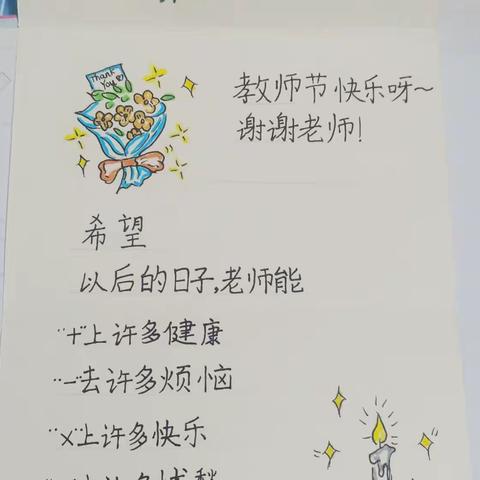 Thank
You
教师节快乐呀~
谢谢老师!
希望
以后的日子,老师能
"+"上许多健康
"-"去许多烦恼
"×"上许多快乐